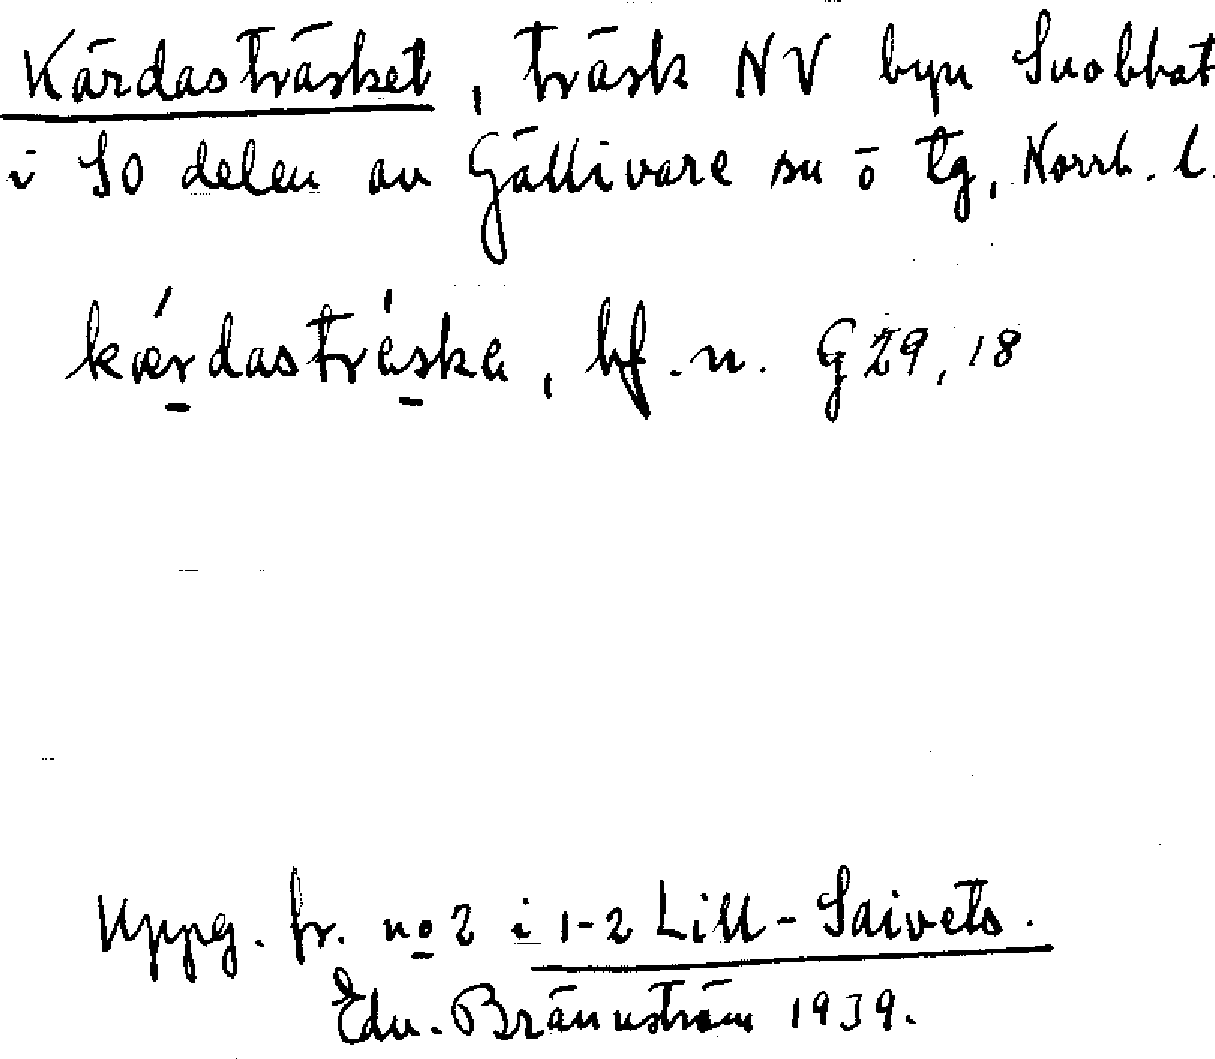 Kärdasträsket, träsk NV byn Suobbat
i SO delen av Gällivare sn o tg, Norrb. l.
kærdastræska, bf. n. G 29, 18
Uppg. fr. no 2 i 1-2 Lill-Saivets.
Edv. Brännström 1939.